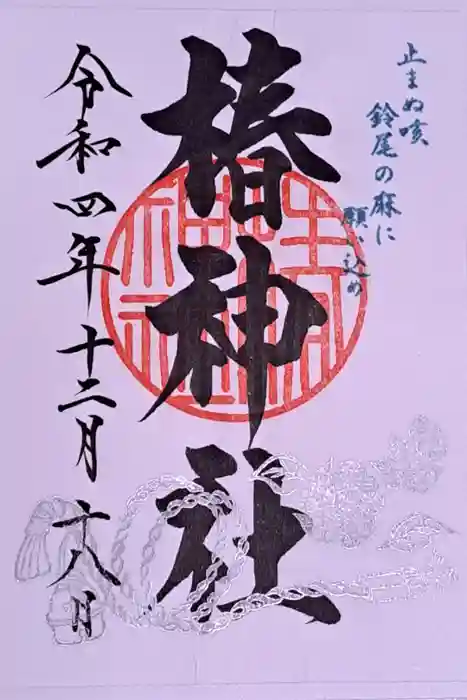 止まぬ咳
鈴尾の麻に
願い込め
椿神社
令和四年十二月十八日